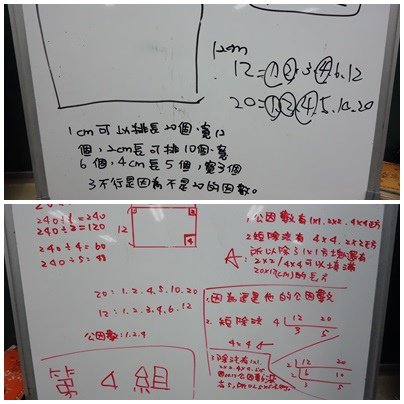 12cm
12=1.2.3.4.6.12
20=1.2.4.5.10.20
1cm可以排長20個,寬12
個,2cm長可排10個,寬
6個,4cm長5個,寬3個
3不行是因為不是20的因數。
240÷1=240
240÷2=120
240÷4=60
240÷5=48
12
4
20:1.2.4.5.10.20
12:1.2.3.4.6.12
公因數:1.2.4
第4組
1.公因數有1×1.2×2.4×4
2.短除法有4×4.2×2
A:
所以除了1×1
2×2/4×4可以填滿
20×12(cm)的
1.因為這是他的公因數
2.短除法
4 12 20
3 5
4×4
3.除法有1×1.
2×2.4×4
2 12 20
2 6 10
3 5